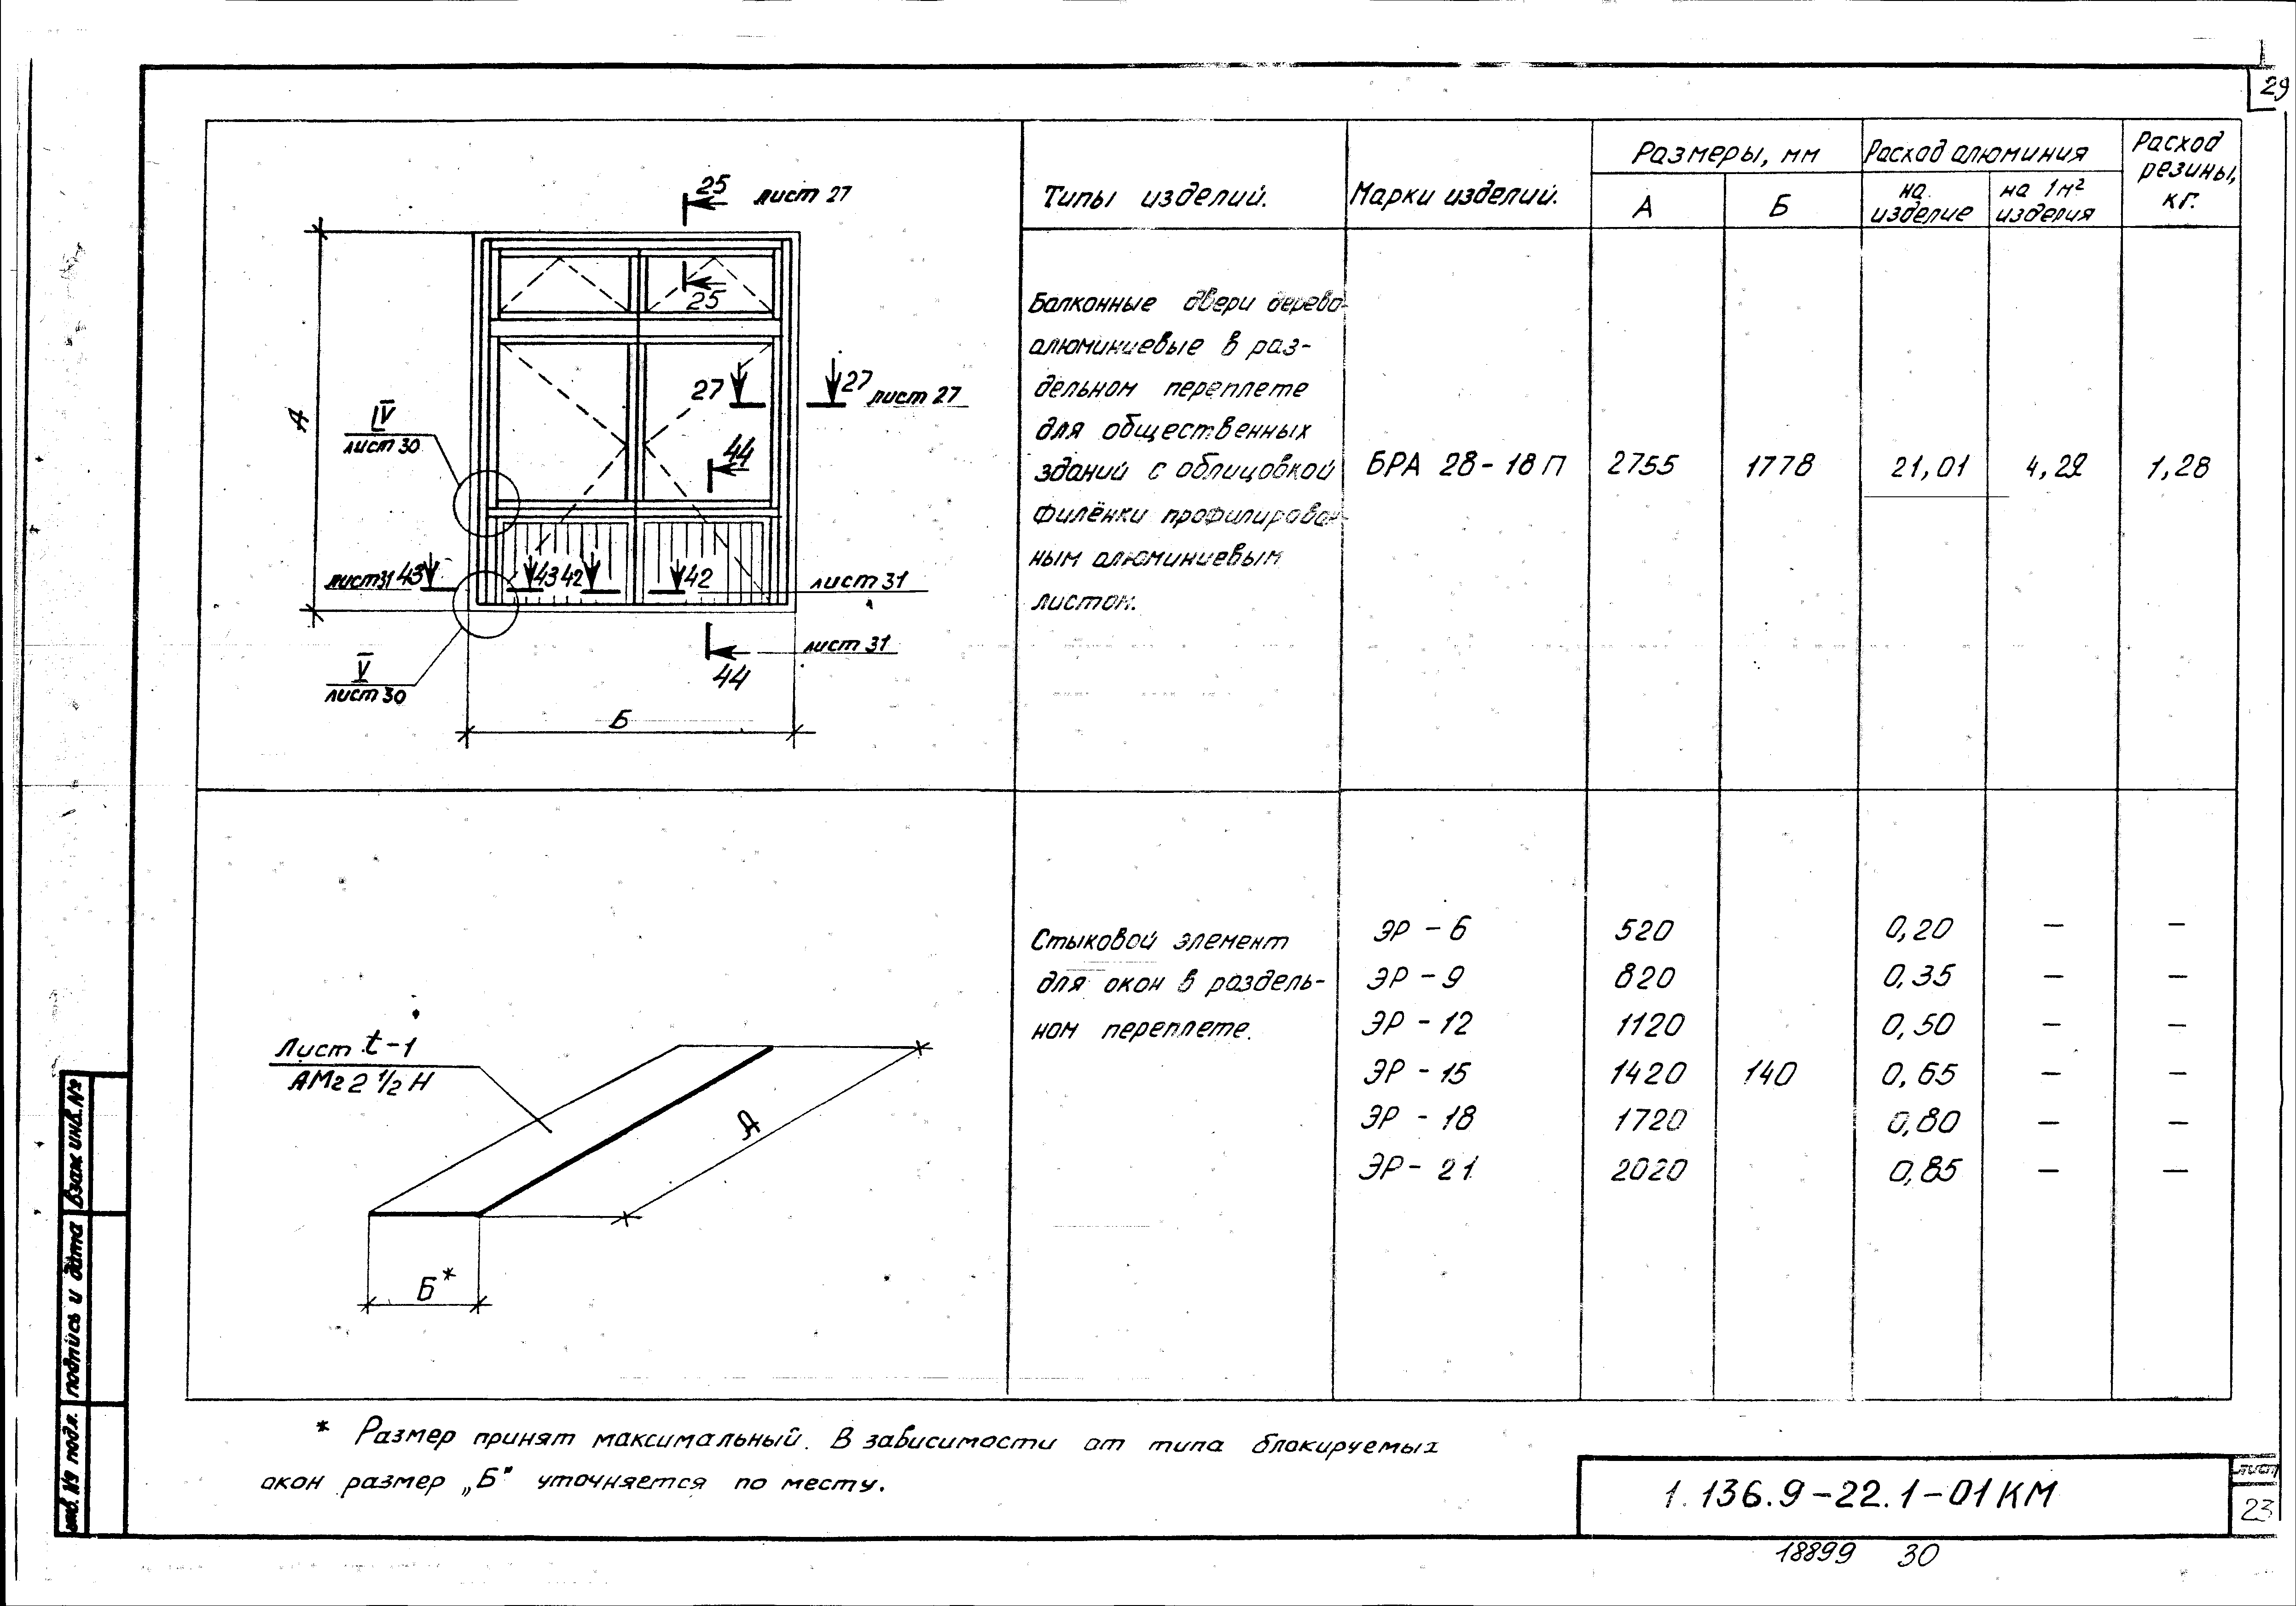 29
25 лист 27
25
27 27 лист 27
IV
лист 30
44
лист 31 43 43 42 42 лист 31
лист 31
44
V
лист 30
А
Б
Типы изделий.
Марки изделий.
Размеры, мм
А Б
Расход алюминия
на изделие
на 1м² изделия
Расход
резины,
кг.
Балконные двери дерево-
алюминиевые в раз-
дельном переплете
для общественных
зданий с облицовкой
филёнки профилирован-
ным алюминиевым
листом.
БРА 28-18П 2755 1778 21,01 4,22 1,28
Лист t-1
АМг2 1/2 Н
А
Б*
Стыковой элемент
для окон в раздель-
ном переплете.
ЭР - 6 520 0,20 — —
ЭР - 9 820 0,35 — —
ЭР - 12 1120 0,50 — —
ЭР - 15 1420 140 0,65 — —
ЭР - 18 1720 0,80 — —
ЭР - 21 2020 0,85 — —
* Размер принят максимальный. В зависимости от типа блокируемых
окон размер „Б" уточняется по месту.
1.136.9-22.1-01КМ
лист
23
18899 30
Взам инв. №
подпись и дата
инв. № подл.